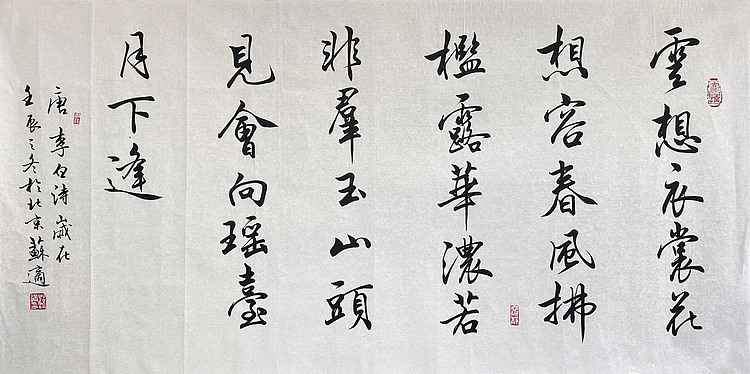 雲想衣裳花
想容春風拂
檻露華濃若
非羣玉山頭
見會向瑶臺
月下逢
唐李白詩歲在
壬辰之冬於北京蘇適